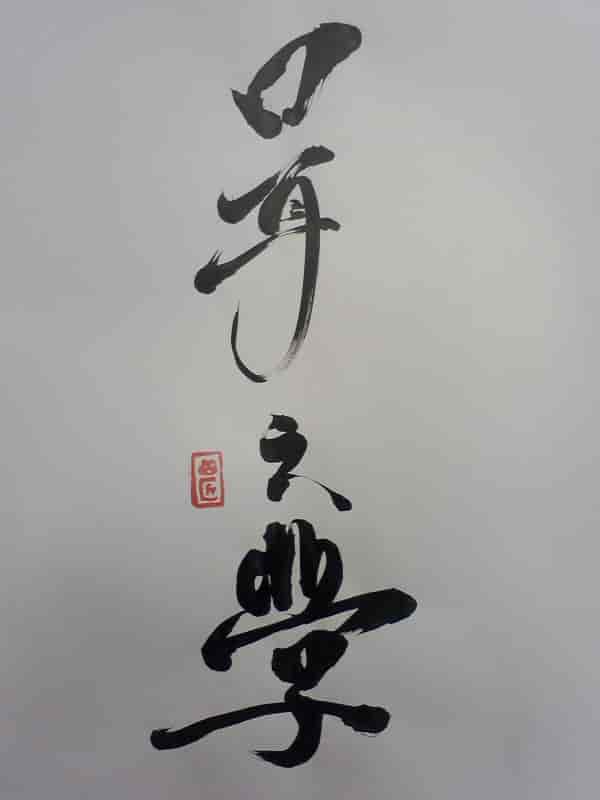 口耳之學